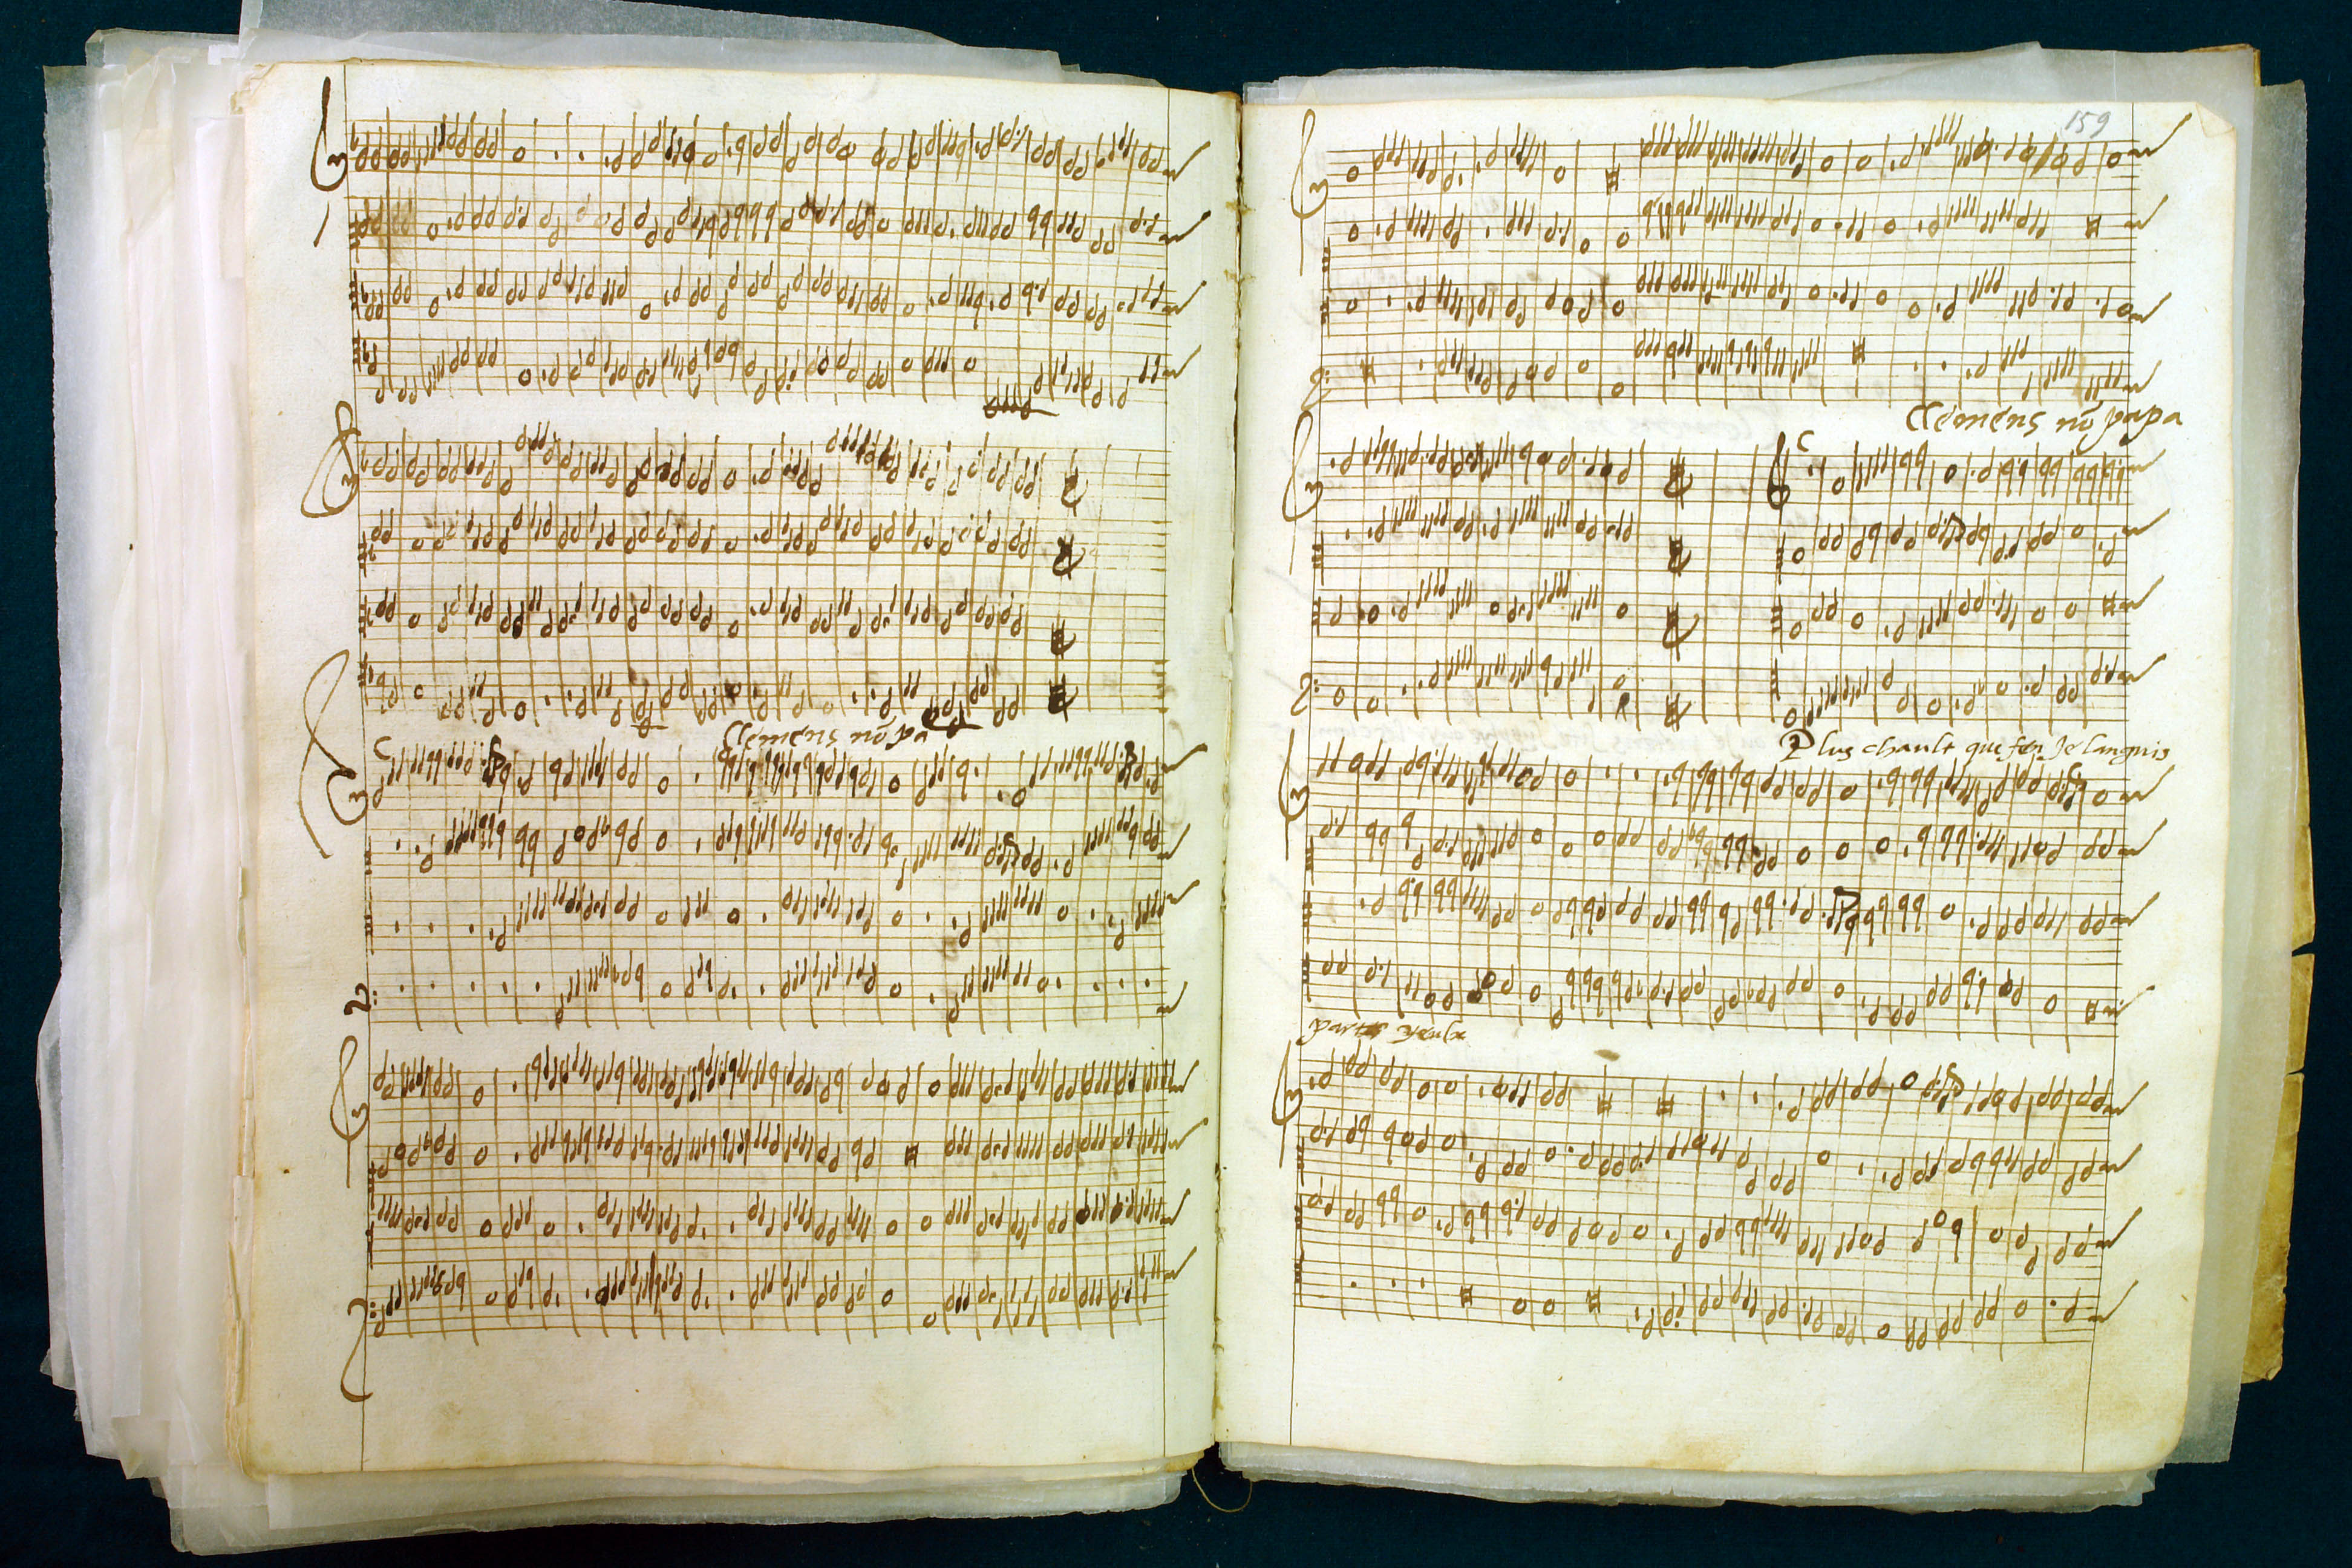 Clemens nō papa
159
Clemens nō papa
Plus chault que feu Je languis
partes